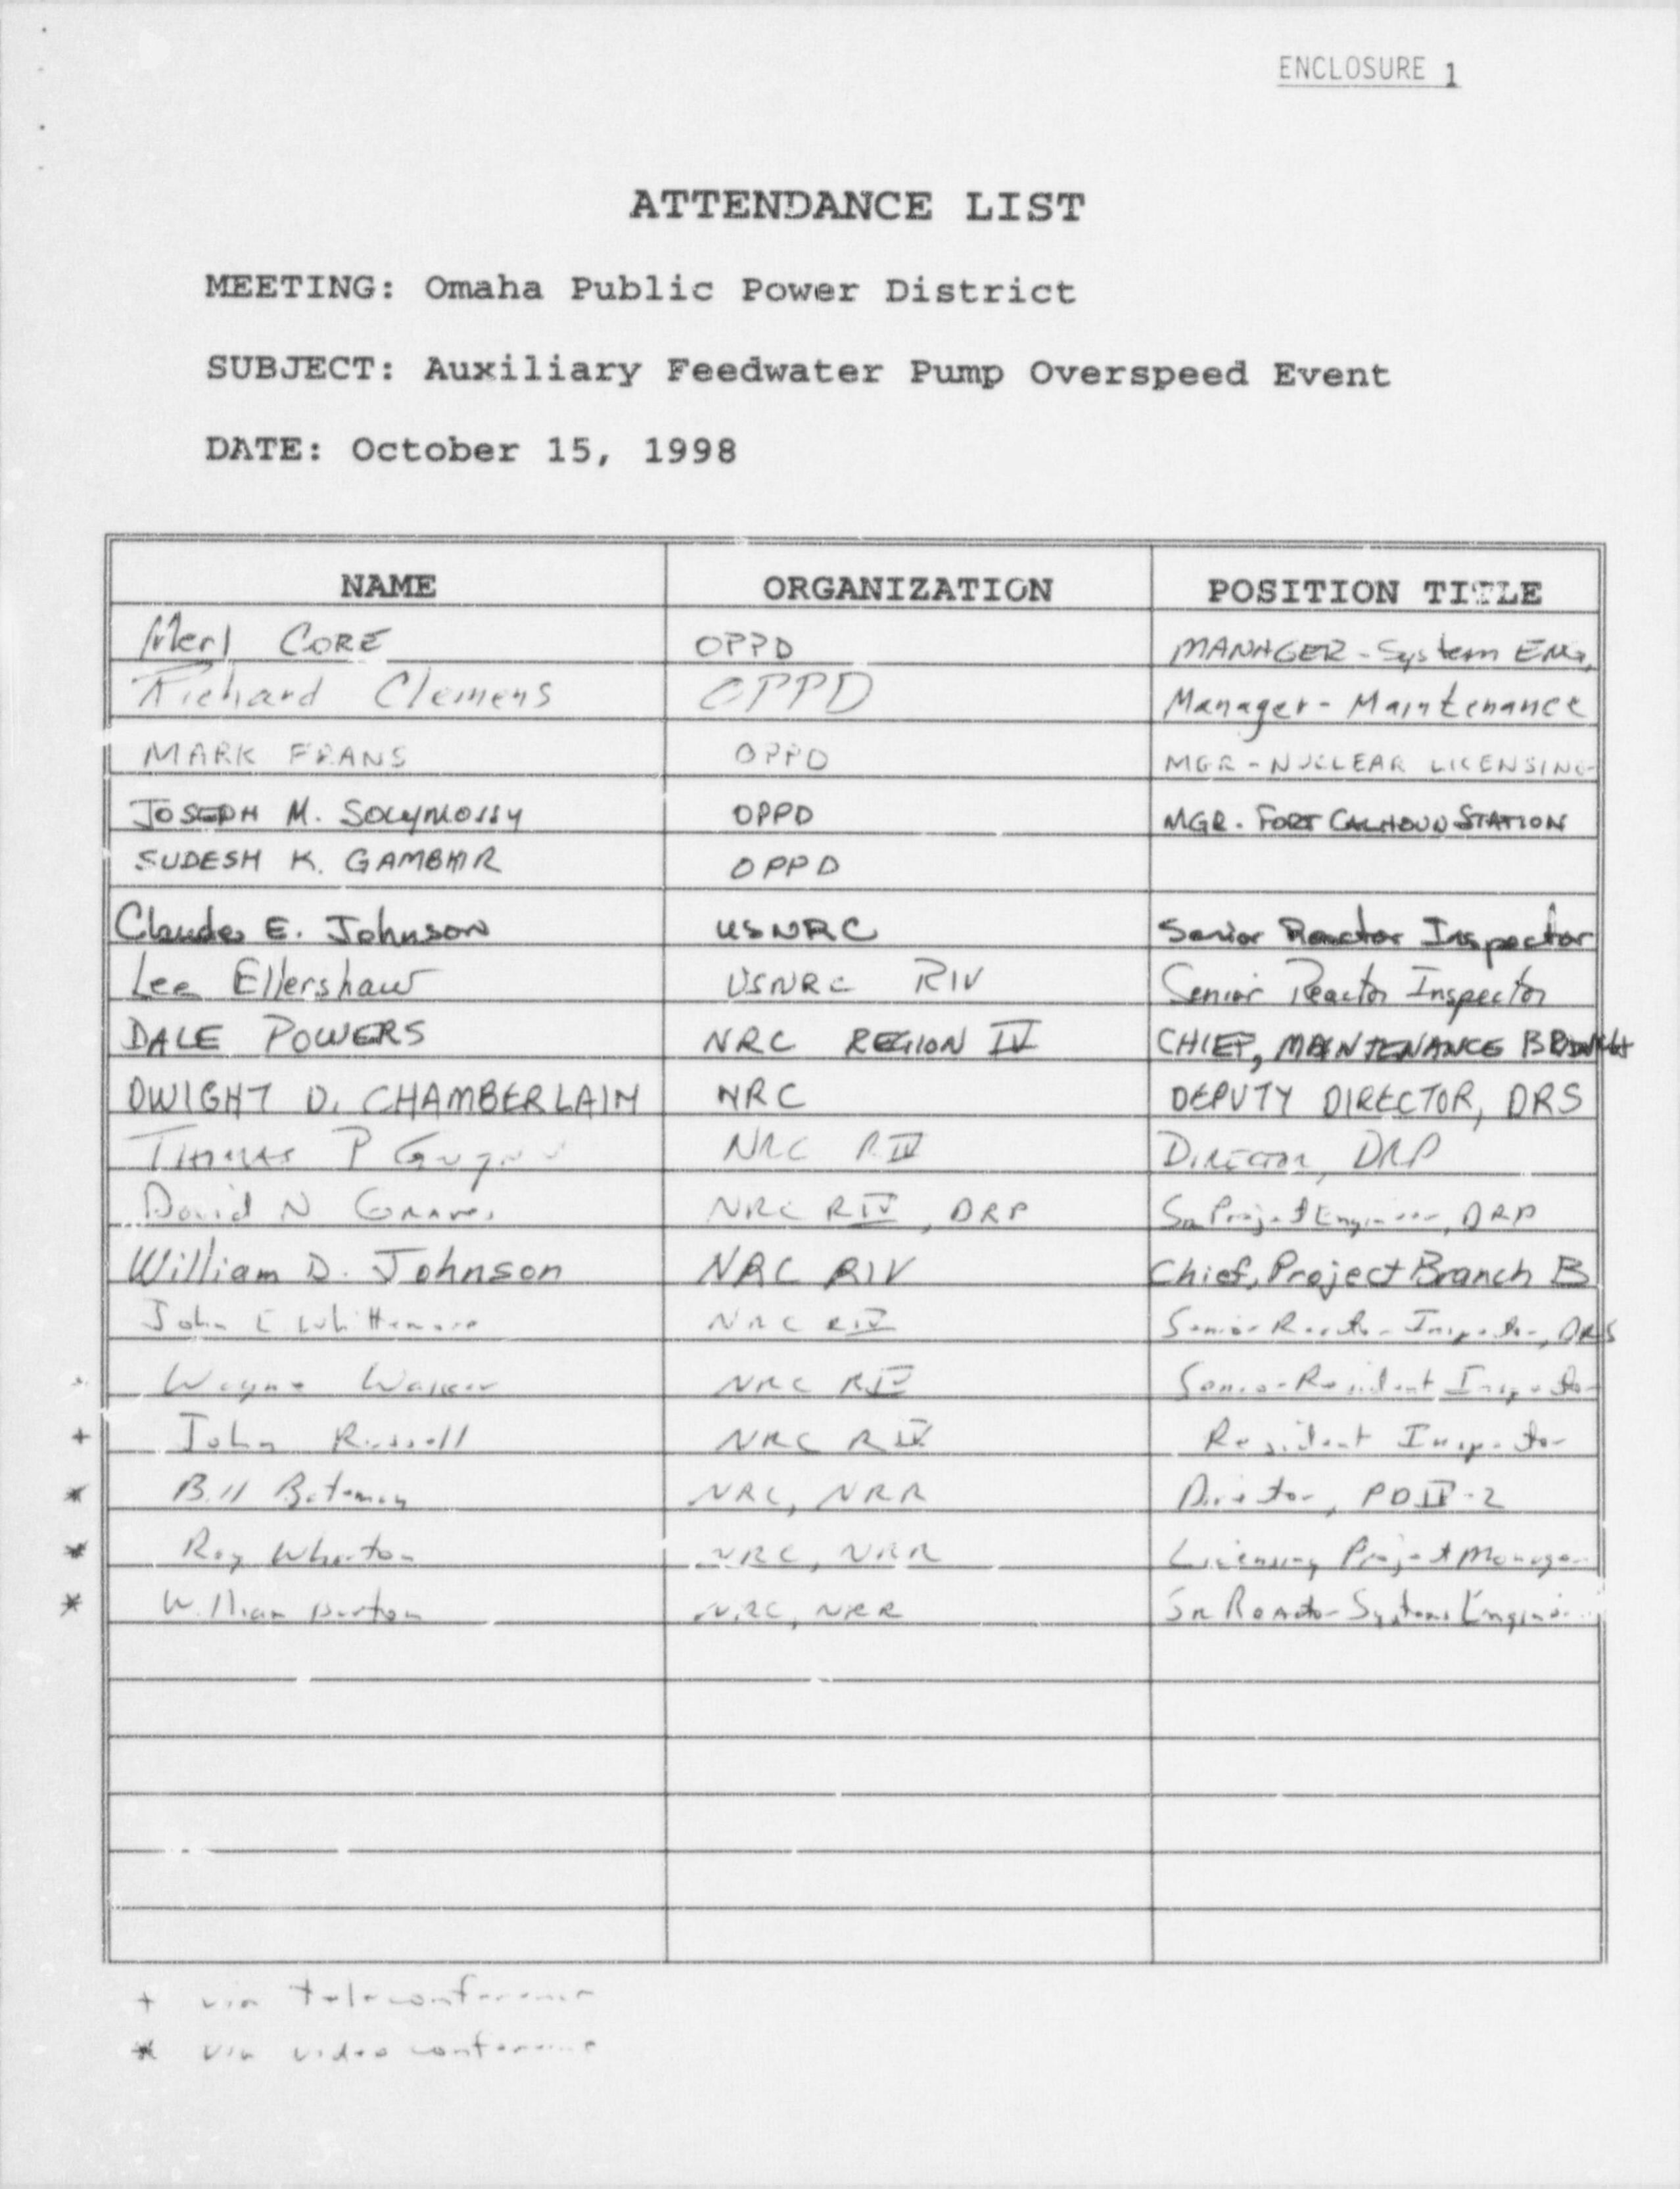 ENCLOSURE 1
ATTENDANCE LIST
MEETING: Omaha Public Power District
SUBJECT: Auxiliary Feedwater Pump Overspeed Event
DATE: October 15, 1998
NAME ORGANIZATION POSITION TITLE
Merl CORE OPPD MANAGER - System ENG.
Richard Clemens OPPD Manager - Maintenance
MARK FRANS OPPD MGR - NUCLEAR LICENSING
JOSEPH M. SOLYMOSSY OPPD MGR. FORT CALHOUN STATION
SUDESH K. GAMBHIR OPPD
Claude E. Johnson USNRC Senior Reactor Inspector
Lee Ellershaw USNRC RIV Senior Reactor Inspector
DALE POWERS NRC REGION IV CHIEF, MAINTENANCE BRANCH
DWIGHT D. CHAMBERLAIN NRC DEPUTY DIRECTOR, DRS
Thomas P NRC RIV DIRECTOR, DRP
David N Graves NRC RIV, DRP Sr Project Engineer, DRP
William D. Johnson NRC RIV Chief, Project Branch B
John E Whittemore NRC RIV Senior Reactor Inspector, DRS
Wayne Walker NRC RIV Senior Resident Inspector
+ John Russell NRC RIV Resident Inspector
* Bill Bateman NRC, NRR Director, PDIV-2
* Ray Wharton NRC, NRR Licensing Project Manager
* William Burton NRC, NRR Sr Reactor Systems Engineer
+ via teleconference
* via video conference